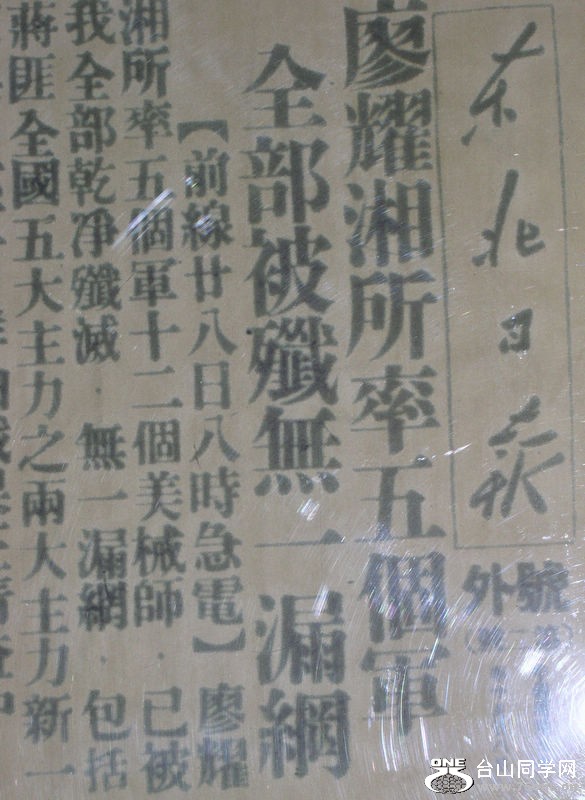 东北日报
號外
廖耀湘所率五個軍
全部被殲無一漏網
【前線廿八日八時急電】廖耀
湘所率五個軍十二個美械師·已被
我全部乾净殲滅·無一漏網·包括
蔣匪全國五大主力之兩大主力新一
ONE
台山同学网